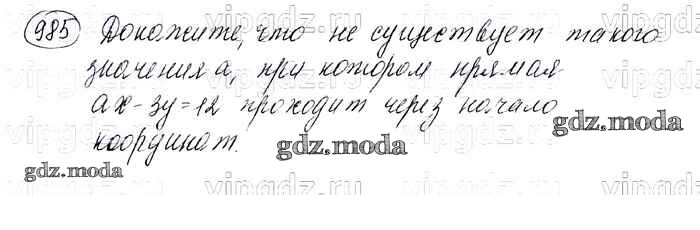 985 Докажите, что не существует такого
значения a, при котором прямая
ax - 3y = 12 проходит через начало
координат.
gdz.moda
gdz.moda
gdz.moda
vipgdz.ru